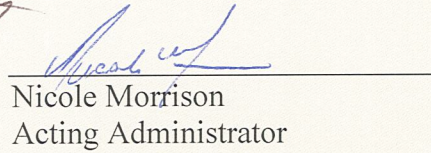 Nicole Morrison
Acting Administrator